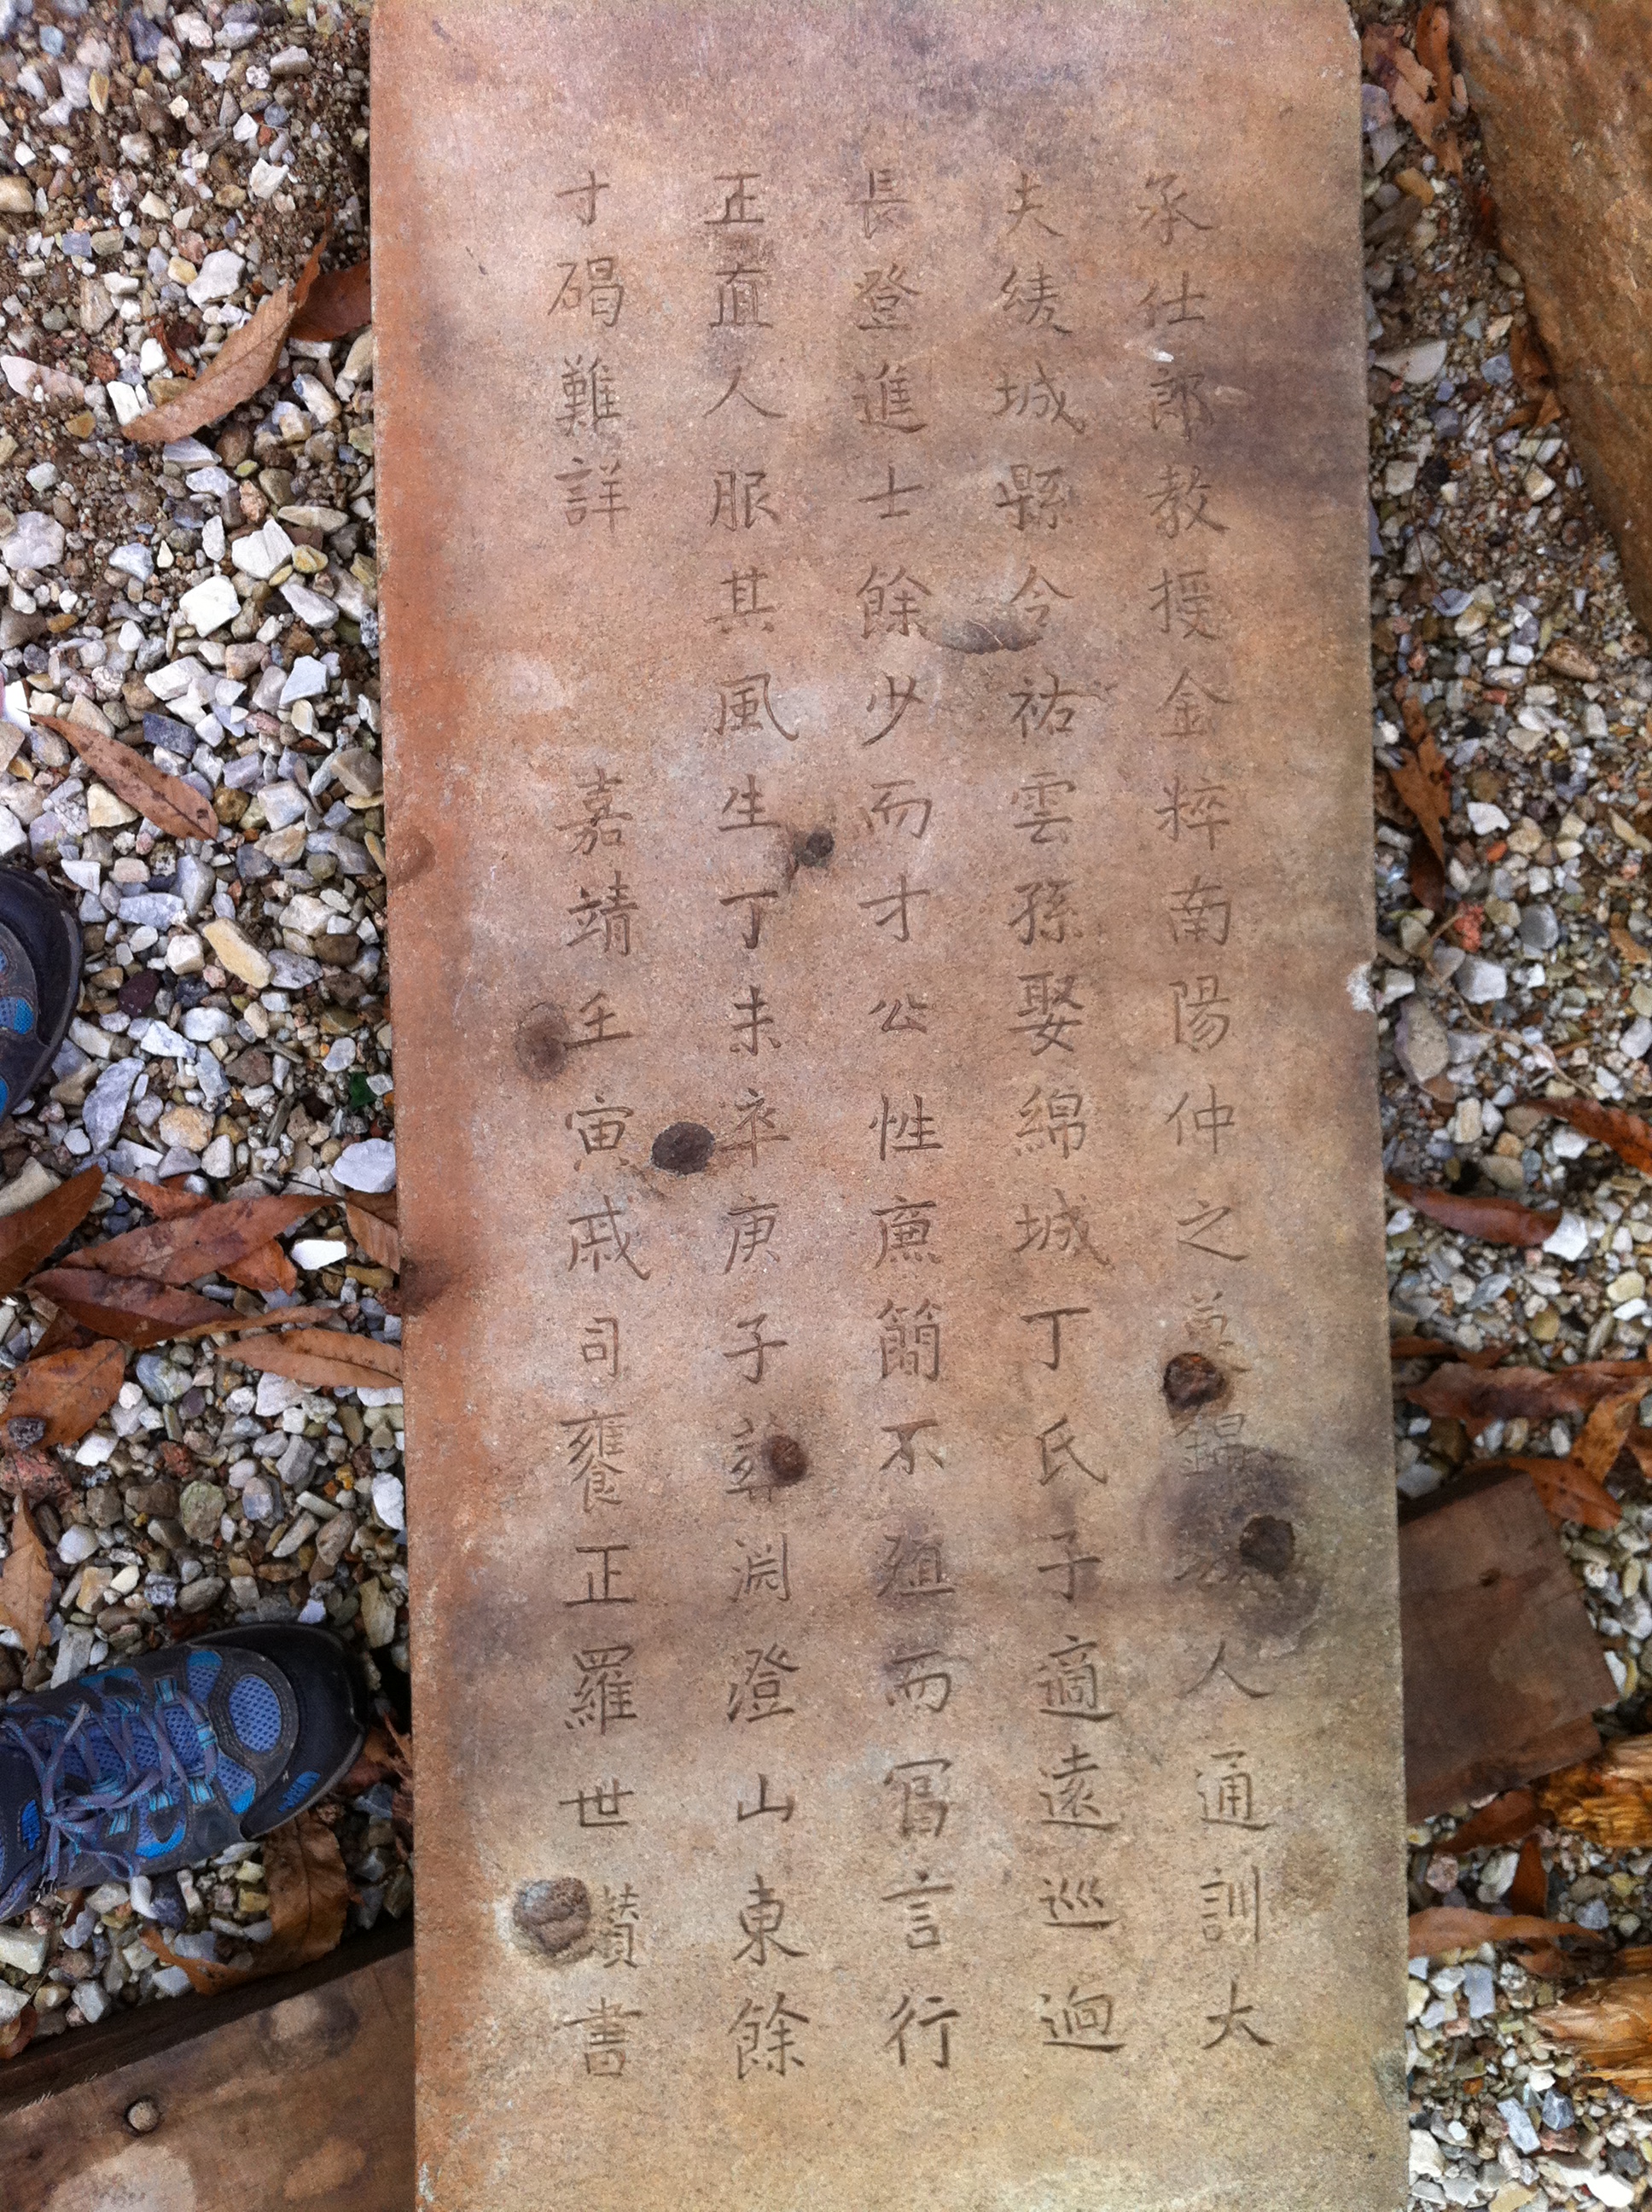 承仕郎教授金粹南陽仲之墓錦城人通訓大
夫綾城縣令祐雲孫娶綿城丁氏子適遠巡逈
長登進士餘少而才公性廉簡不殖而冨言行
正直人服其風生丁未卒庚子葬淵澄山東餘
寸碣難詳 嘉靖壬寅戚司饔正羅世纘書